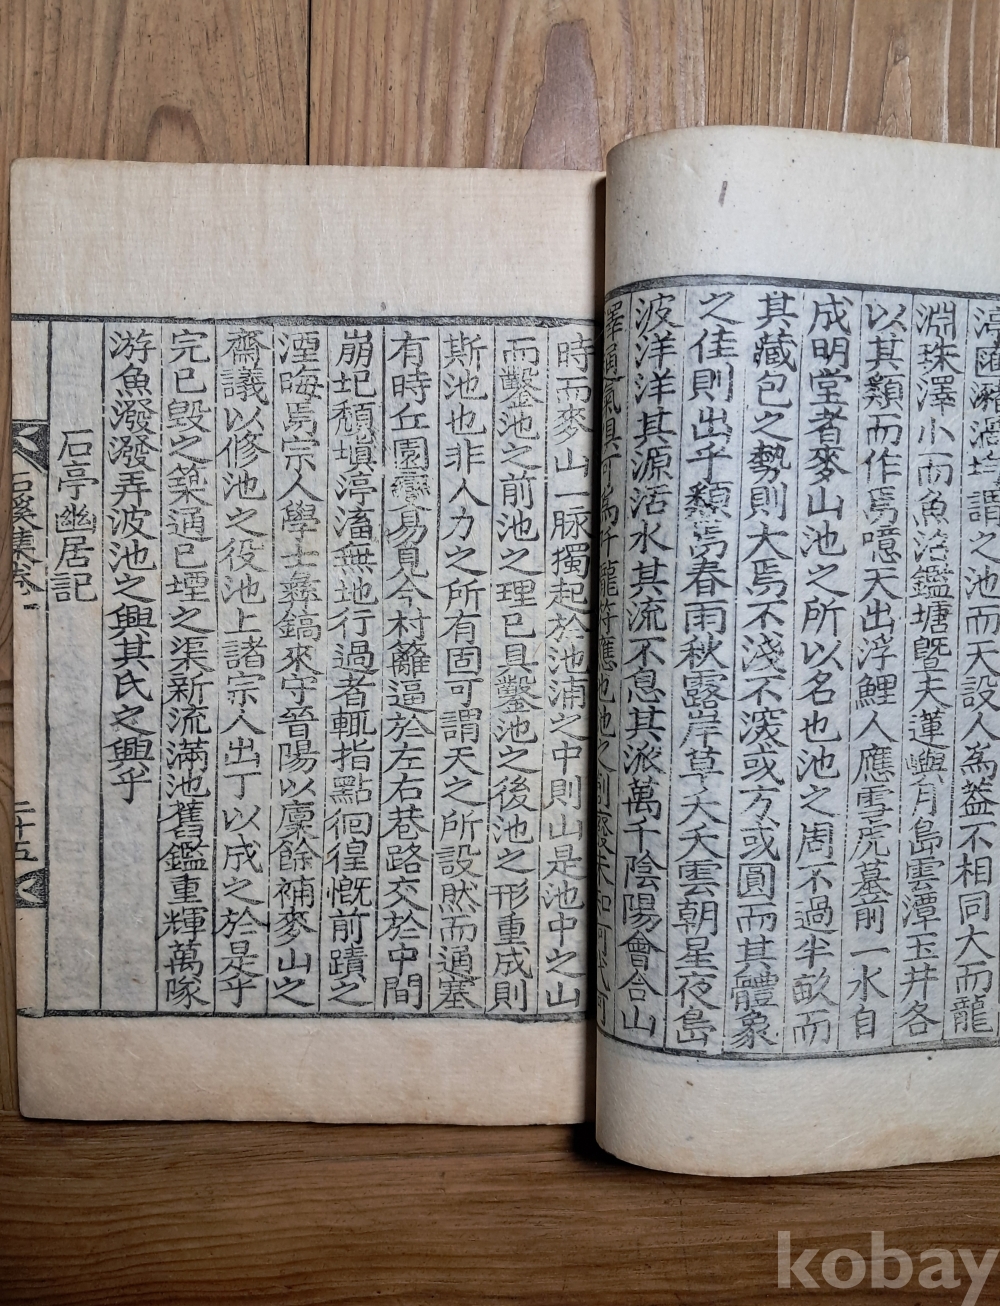 渟匯瀦濄均謂之池而天設人為盖不相同大而龍
淵珠澤小而魚沼鑑塘曁夫蓮嶼月島雲潭玉井各
以其類而作焉噫天出浮鯉人應雩虎墓前一水自
成明堂者麥山池之所以名也池之周不過半畝而
其藏包之勢則大焉不淺不深或方或圓而其軆象
之佳則出乎類焉春雨秋露岸草夭夭雲朝星夜島
波洋洋其源活水其流不息其派萬千陰陽會合山
時而麥山一脉獨起於池浦之中則山是池中之山
而鑿池之前池之理已具鑿池之後池之形重成則
斯池也非人力之所有固可謂天之所設然而通塞
有時丘園變易見今村籬逼於左右巷路交於中間
崩圯頹塡渟滀無地行過者輒指點徊徨慨前蹟之
湮晦焉宗人學士彜鎬來守晉陽以廩餘補麥山之
齋議以修池之役池上諸宗人出丁以成之於是乎
完已毁之築通已堙之渠新流滿池舊鑑重輝萬隊
游魚潑潑弄波池之興其氏之興乎
石亭幽居記
石溪集卷一
二十五
kobay